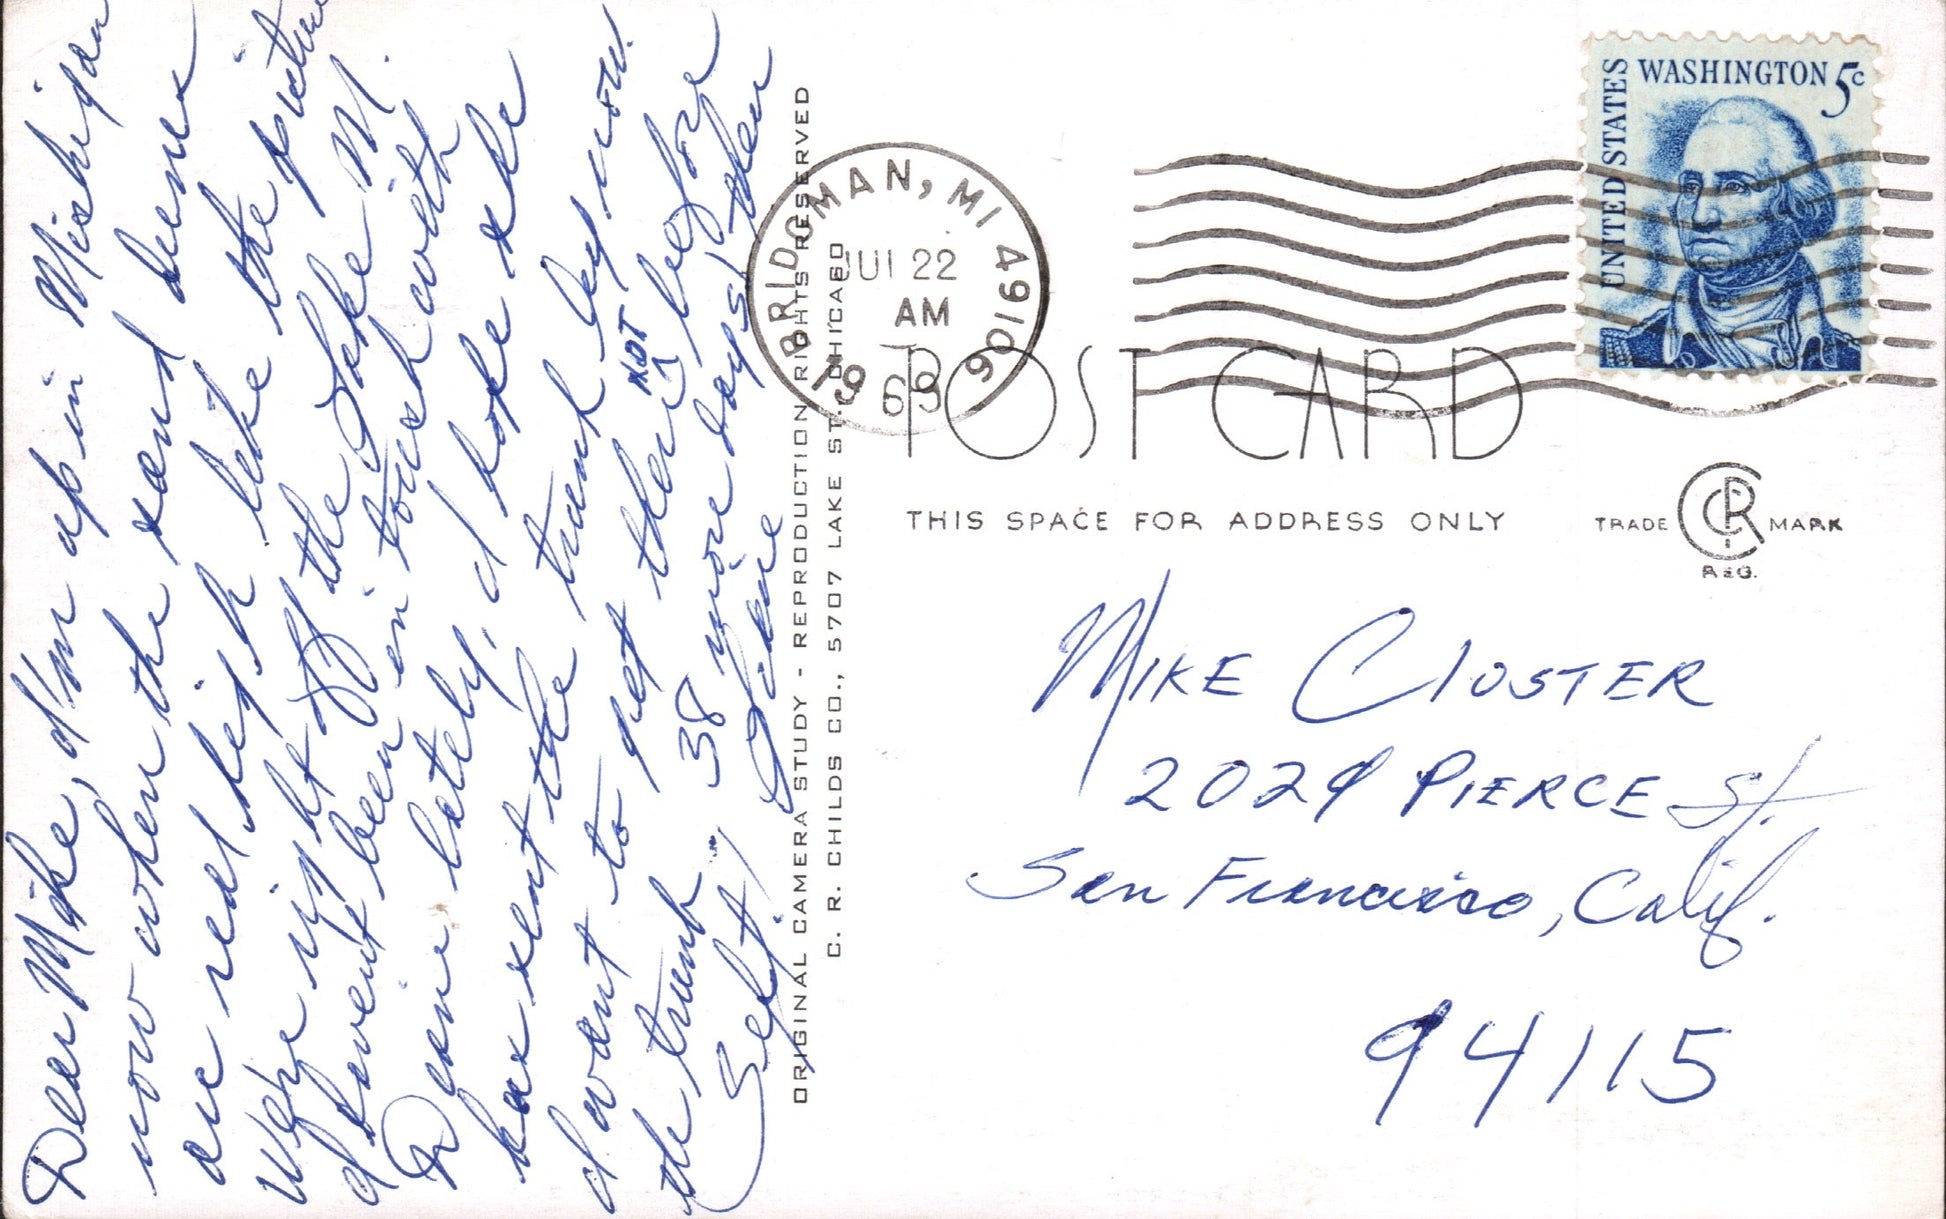 Dear Mike, I'm up in Michigan
now where the sand dunes
are real high like the picture
We're right off the Lake M.
I haven't been in touch with
lately, I hope she
has sent the trunk by now.
I want to get there NOT before
the trunk, 38 more days! then
Sept.
ORIGINAL CAMERA STUDY - REPRODUCTION RIGHTS RESERVED
C. R. CHILDS CO., 5707 LAKE ST., CHICAGO
BRIDGMAN, MI 49106
JUL 22
AM
1969
UNITED STATES
WASHINGTON 5c
POST CARD
THIS SPACE FOR ADDRESS ONLY
TRADE CRC MARK
REG.
MIKE CLUSTER
2029 PIERCE St.
San Francisco, Calif.
94115